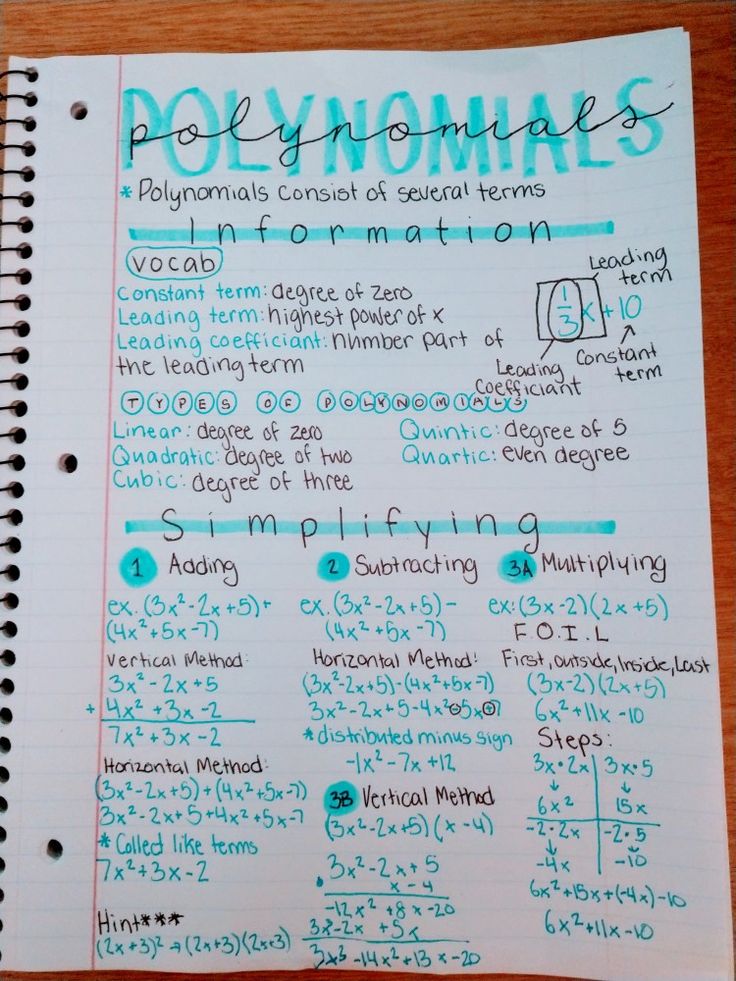 POLYNOMIALS
polynomials
* Polynomials consist of several terms
Information
vocab
Constant term: degree of zero
Leading term: highest power of x
Leading coefficiant: number part of
the leading term
Leading
term
1/3 x + 10
Leading
Coefficiant
Constant
term
TYPES OF POLYNOMIALS
Linear: degree of zero
Quadratic: degree of two
Cubic: degree of three
Quintic: degree of 5
Quartic: even degree
Simplifying
1 Adding
ex. (3x²-2x+5)+
(4x²+5x-7)
Vertical Method:
3x²-2x+5
+ 4x²+3x-2
7x²+3x-2
Horizontal Method:
(3x²-2x+5)+(4x²+5x-7)
3x²-2x+5+4x²+5x-7
* Collect like terms
7x²+3x-2
Hint***
(2x+3)² → (2x+3)(2x+3)
2 Subtracting
ex. (3x²-2x+5)-
(4x²+5x-7)
Horizontal Method:
(3x²-2x+5)-(4x²+5x-7)
3x²-2x+5-4x²-5x+7
* distributed minus sign
-1x²-7x+12
3B Vertical Method
(3x²-2x+5)(x-4)
3x²-2x+5
• x-4
-12x²+8x-20
3x³-2x +5x
3x³-14x²+13x-20
3A Multiplying
ex: (3x-2)(2x+5)
F.O.I.L
First, outside, Inside, Last
(3x-2)(2x+5)
6x²+11x-10
Steps:
3x·2x | 3x·5
↓ ↓
6x² 15x
-2·2x | -2·5
↓ ↓
-4x -10
6x²+15x+(-4x)-10
6x²+11x-10